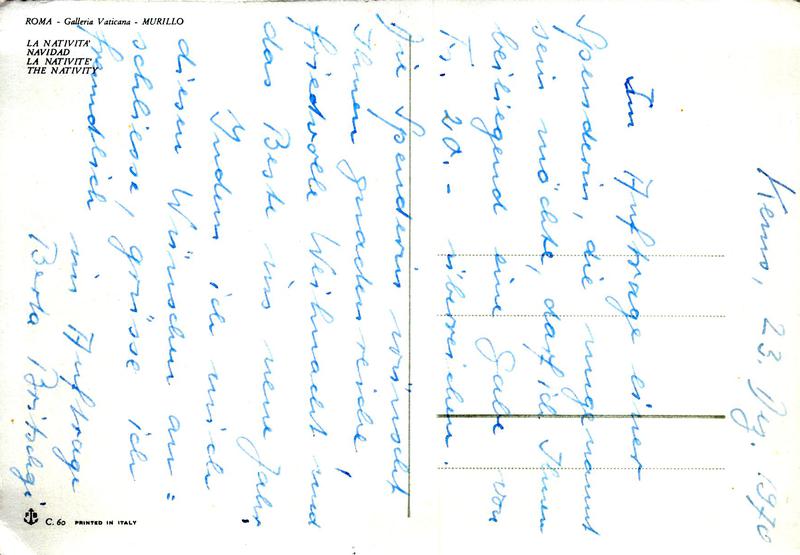 ROMA - Galleria Vaticana - MURILLO
LA NATIVITA'
NAVIDAD
LA NATIVITE'
THE NATIVITY
Kerns, 23. Dez. 1970
Im Auftrage einer
Spenderin, die ungenannt
sein möchte, darf ich Ihnen
beiliegend eine Gabe von
Fr. 20.- überreichen.
Die Spenderin wünscht
Ihnen gnadenreiche,
friedvolle Weihnacht und
das Beste ins neue Jahr.
Indem ich mich
diesen Wünschen an=
schliesse, grüsse ich
freundlich
im Auftrage
Berta Britschgi
C. 60 PRINTED IN ITALY